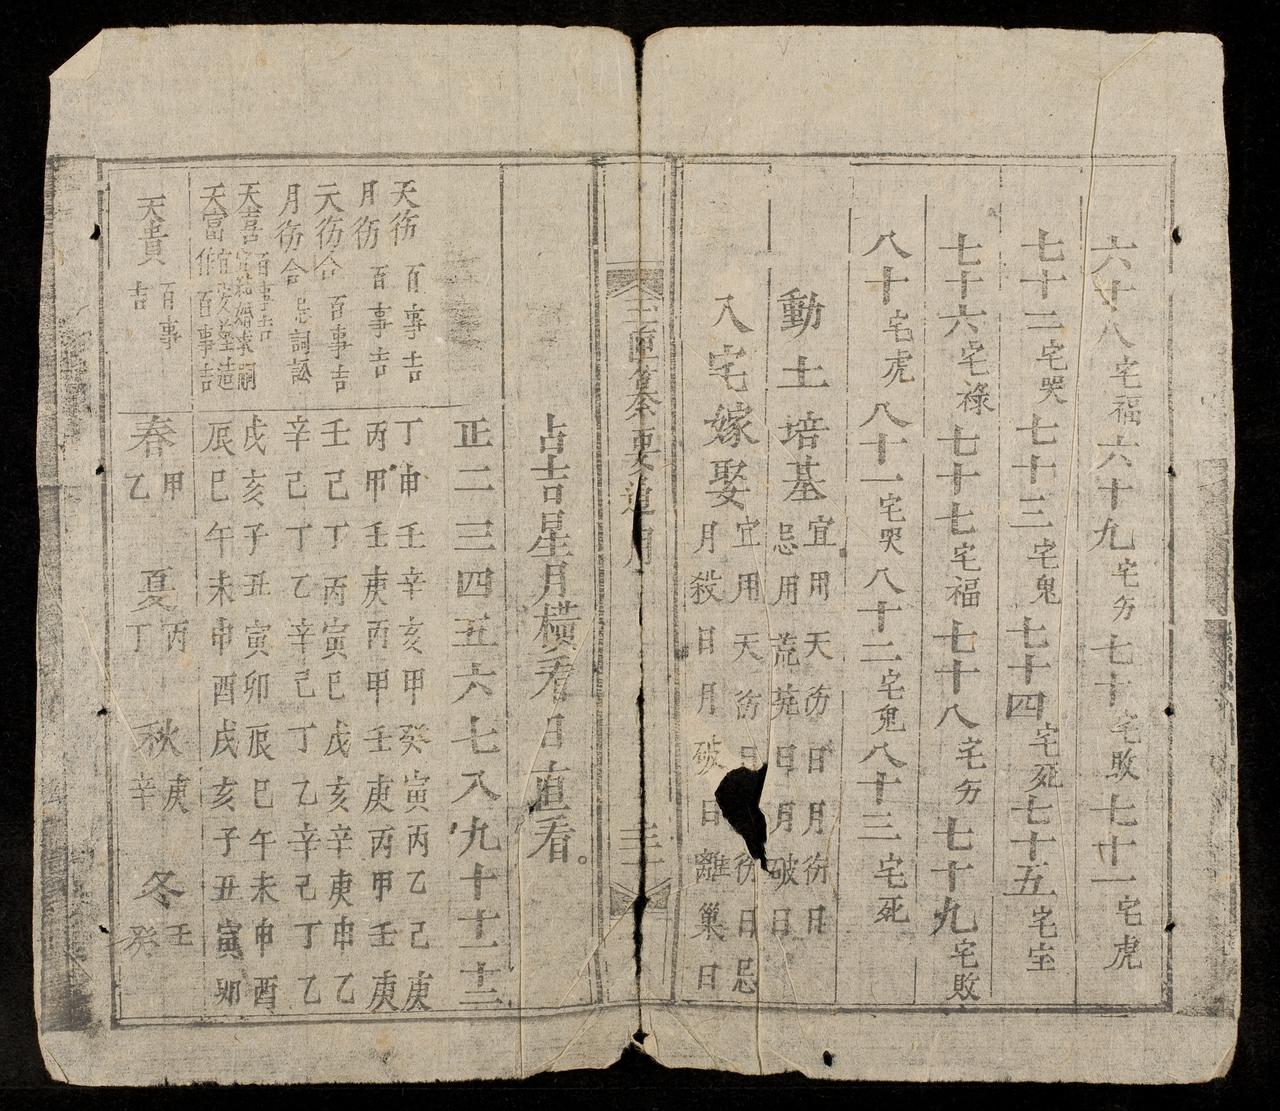 六十八宅福六十九宅䒚七十宅敗七十一宅虎
七十二宅哭七十三宅鬼七十四宅死七十五宅室
七十六宅祿七十七宅福七十八宅䒚七十九宅敗
八十宅虎八十一宅哭八十二宅鬼八十三宅死
動土培基宜用天䘕日月䘕日
忌用荒蕪日月破日
入宅嫁娶宜用天䘕日 䘕日忌
月殺日月破日離巢日
三 纂要通用 三十一
占吉星月橫看日直看。
正二三四五六七八九十十一十二
天䘕百事吉丁申壬辛亥甲癸寅丙乙己庚
月䘕百事吉丙甲壬庚丙甲壬庚丙甲壬庚
天䘕合百事吉壬己丁丙寅巳戊亥辛庚申乙
月䘕合忌詞訟辛己丁乙辛己丁乙辛己丁乙
天喜百事吉 結婚求嗣戌亥子丑寅卯辰巳午未申酉
天富 造作百事吉辰巳午未申酉戌亥子丑寅卯
天貴百事吉春甲乙夏丙丁秋庚辛冬壬癸